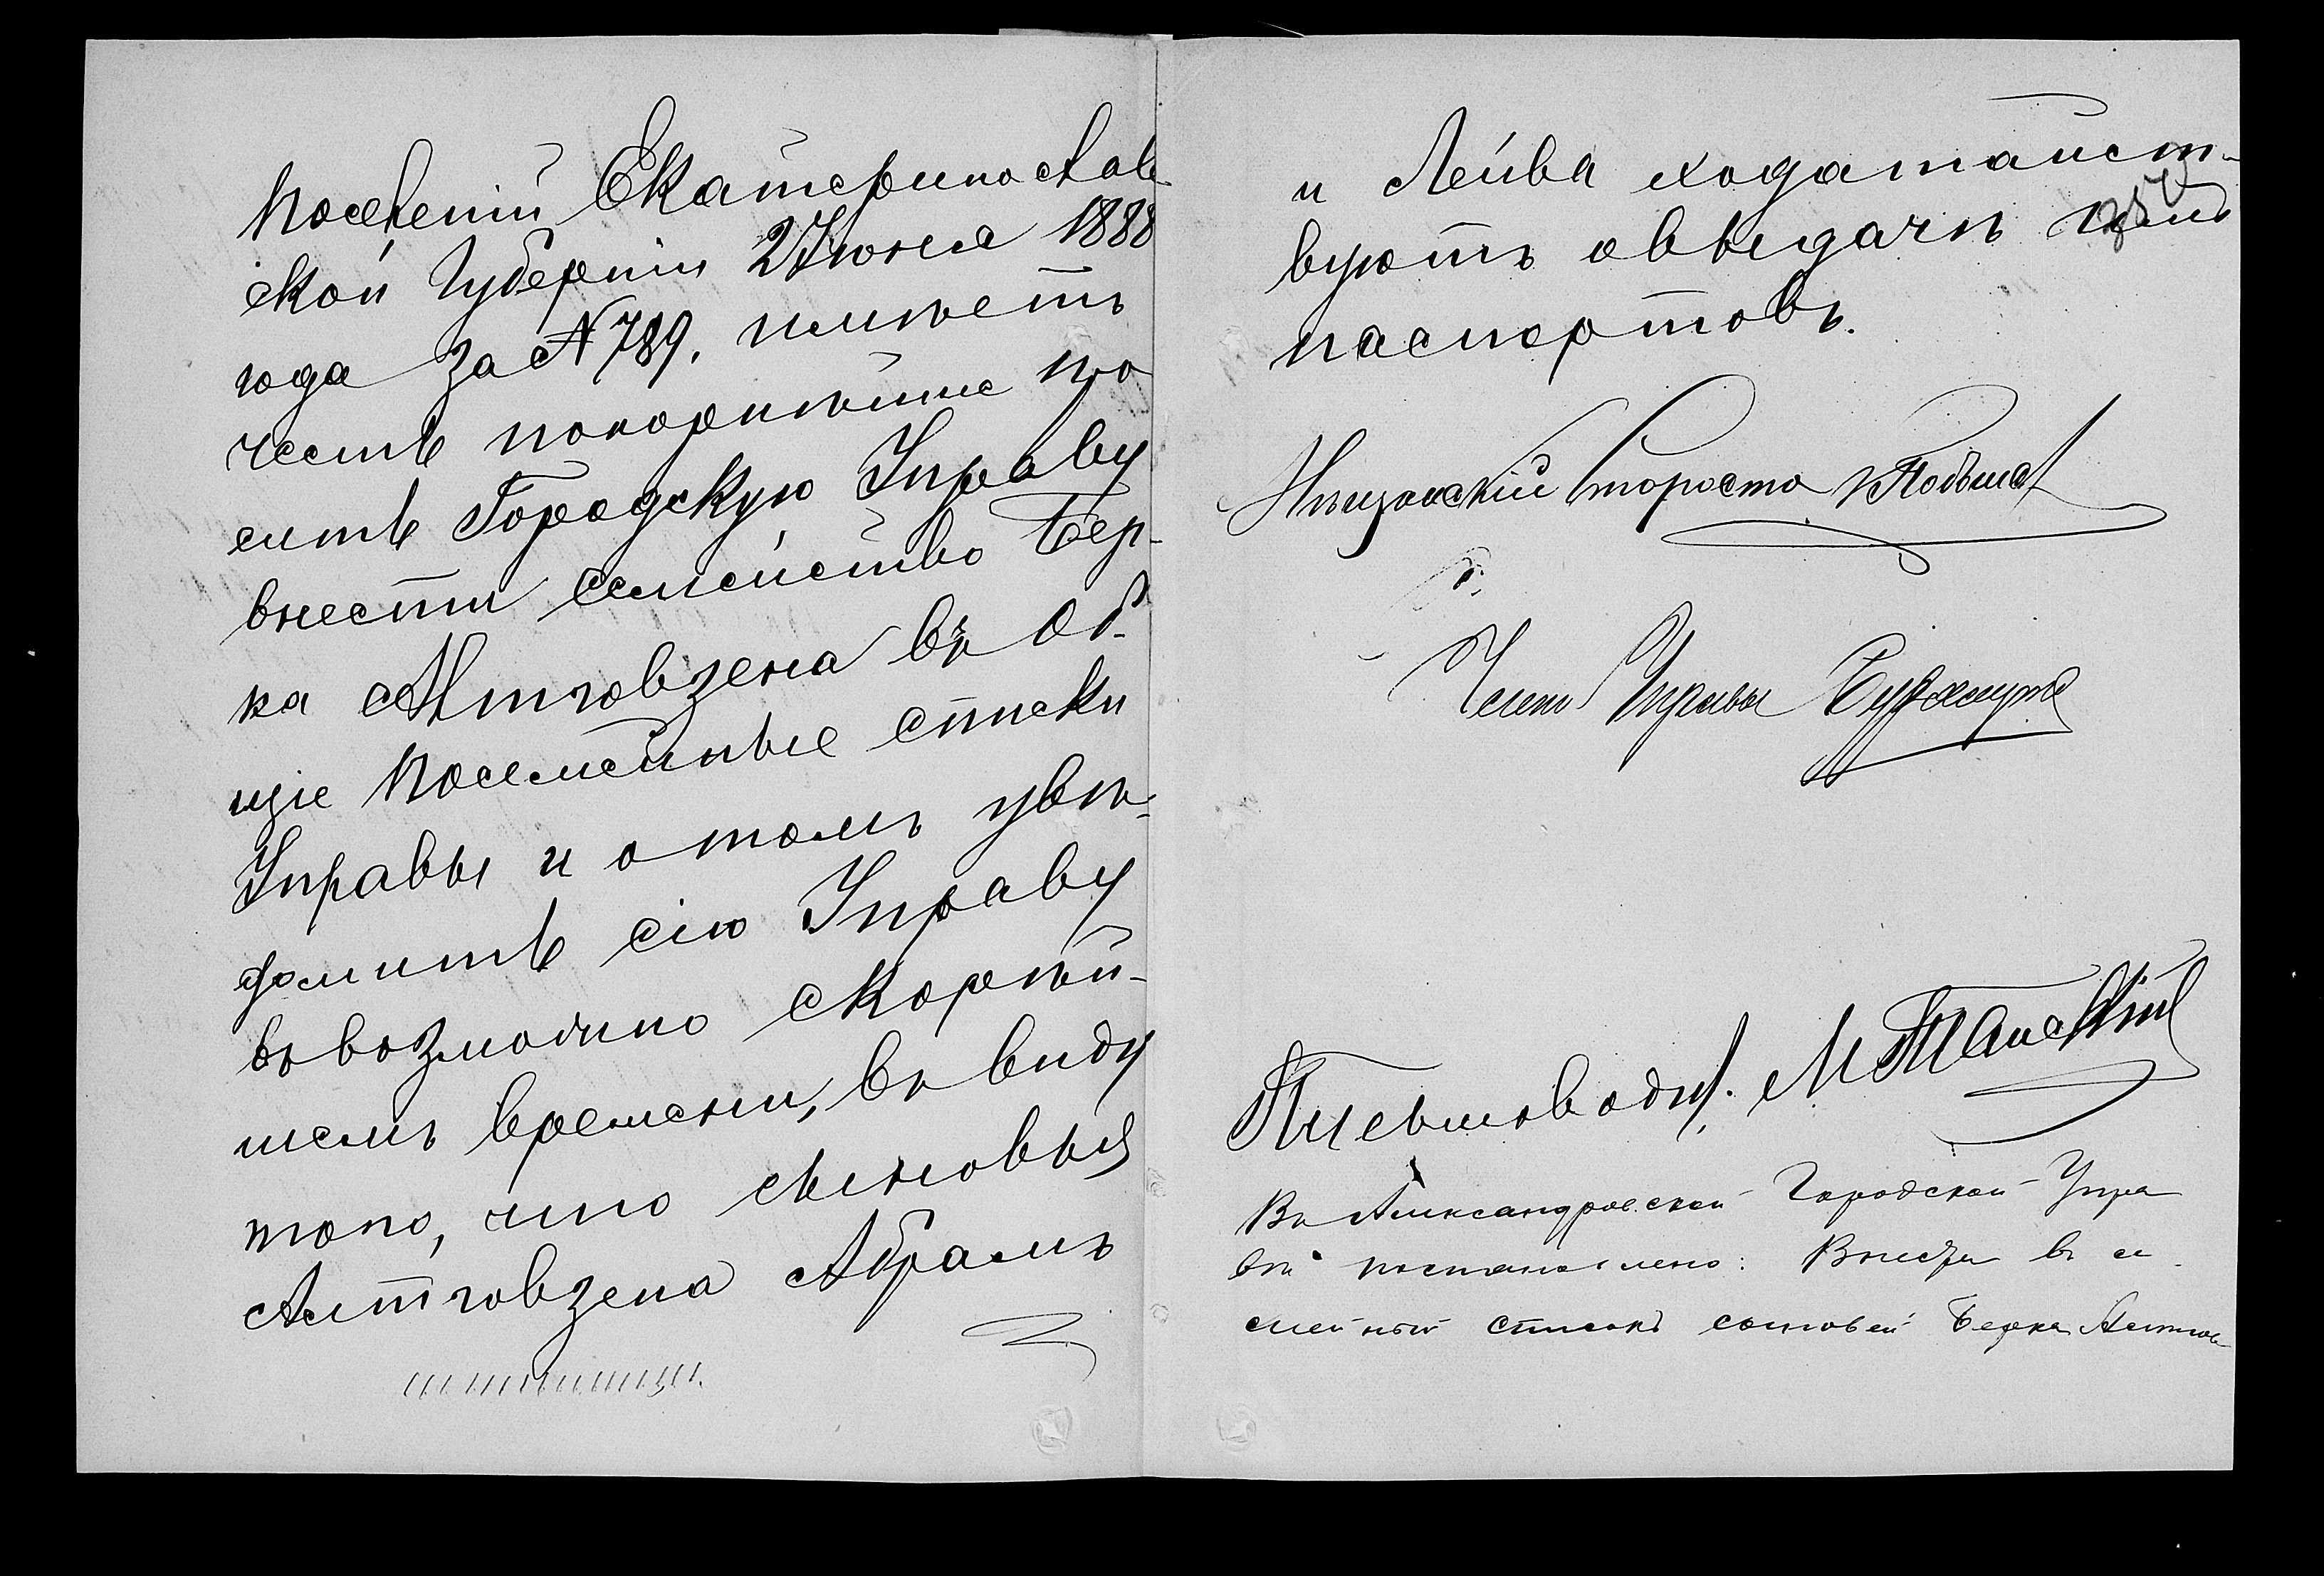 поселеній Екатеринослав-
ской Губерніи 2 Іюня 1888
года за № 789, имѣетъ
честь покорнѣйше про
сить Городскую Управу
внести семейство Бер-
ка Алтговзена въ об-
щіе посемейные списки
Управы и о томъ увѣ-
домить сію Управу
въ возможно скорѣй-
шемъ времени, въ виду
того, что сыновья
Алтговзена Абрамъ
и Лейва ходатайст-
вуютъ о выдачѣ имъ
паспортовъ.
Мѣщанскій Староста
Членъ Управы
Письмовод. М
Въ Александровской Городской Упра
вѣ постановлено: Внести въ се
мейный списокъ сыновей Берка Алтгов